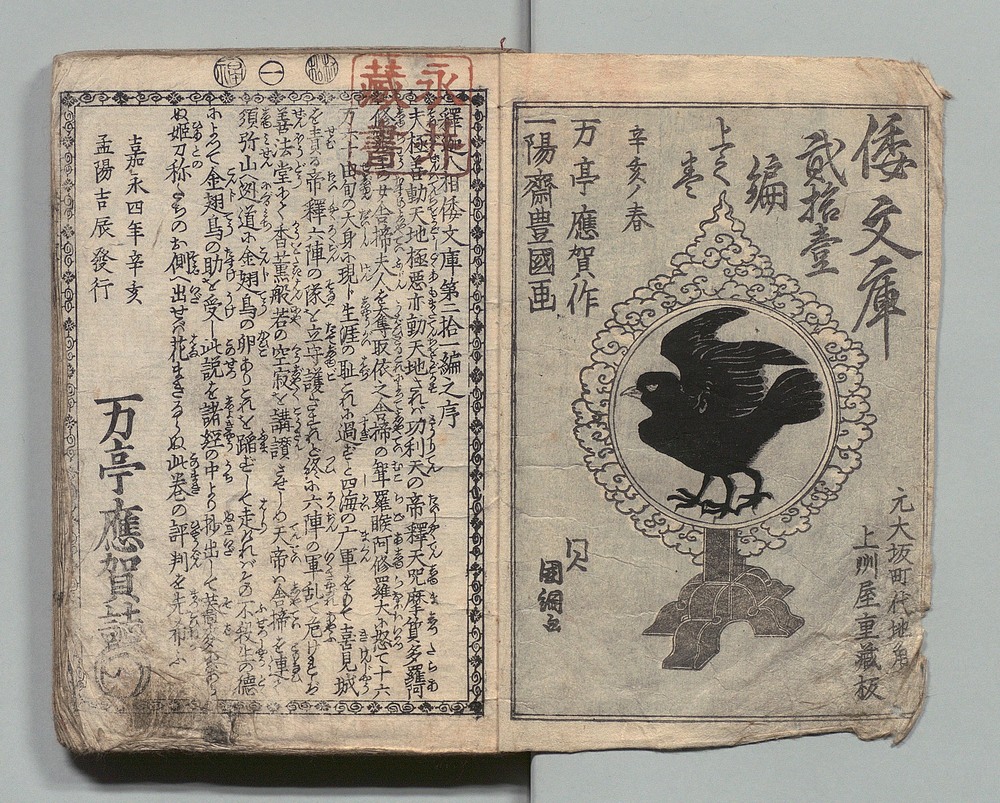 倭文庫
貳拾壹
編
上之
巻
辛亥ノ春
万亭應賀作
一陽齋豊國画
元大坂町代地角
上州屋重藏板
國綱画
永井
藏書
釋迦八相倭文庫第二拾一編之序
夫極善動天地極悪亦動天地されバ功利天の帝釋天呪摩質多羅阿
修羅女舎揥夫人を奪取依之舎揥の耷羅睺阿修羅大に怒て十六
万六千由旬の大身に現ト生涯の恥これに過ずと四海の厂軍をもて喜見城
を責る帝釋六陣の隊を立守護されども終に六陣の軍乱て危けれバ
善法堂にて香薫般若の空寂を講讃させしめ天帝ハ舎揥を連
須弥山の𨕫道に金翅鳥の卵ありこれを踏むじて走るれバその不殺生の德
によつて金翅鳥の助を受し此説を諸經の中より抄出して
姫刀称たちのお側へ出せバ花まきるゝぬ此巻の評判を先布ふ
嘉永四年辛亥
孟陽吉辰發行
万亭應賀誌